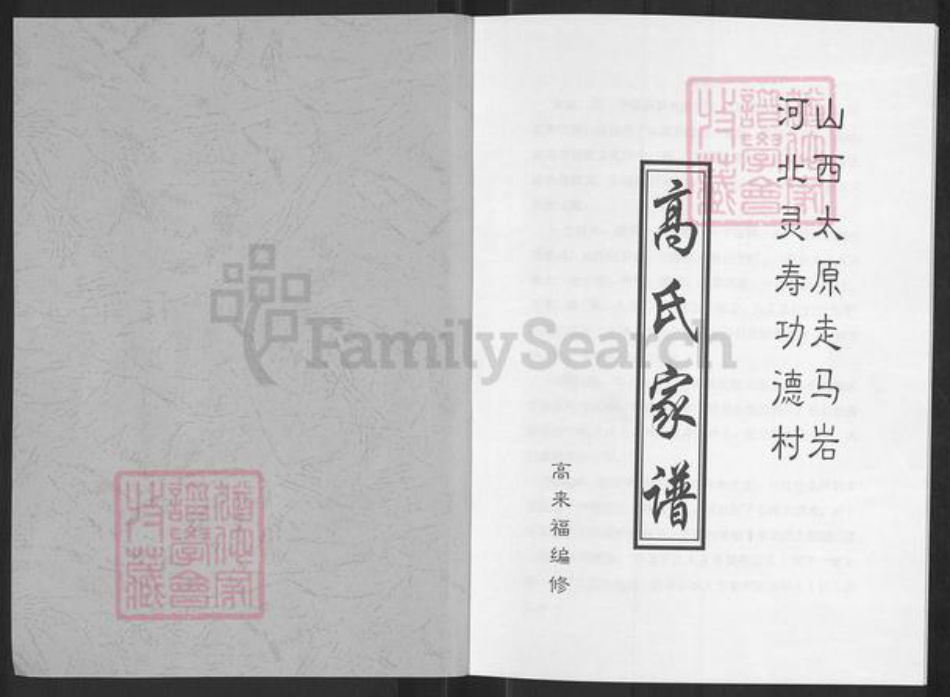 山西太原走马岩
河北灵寿功德村
高氏家谱
高来福编修
FamilySearch